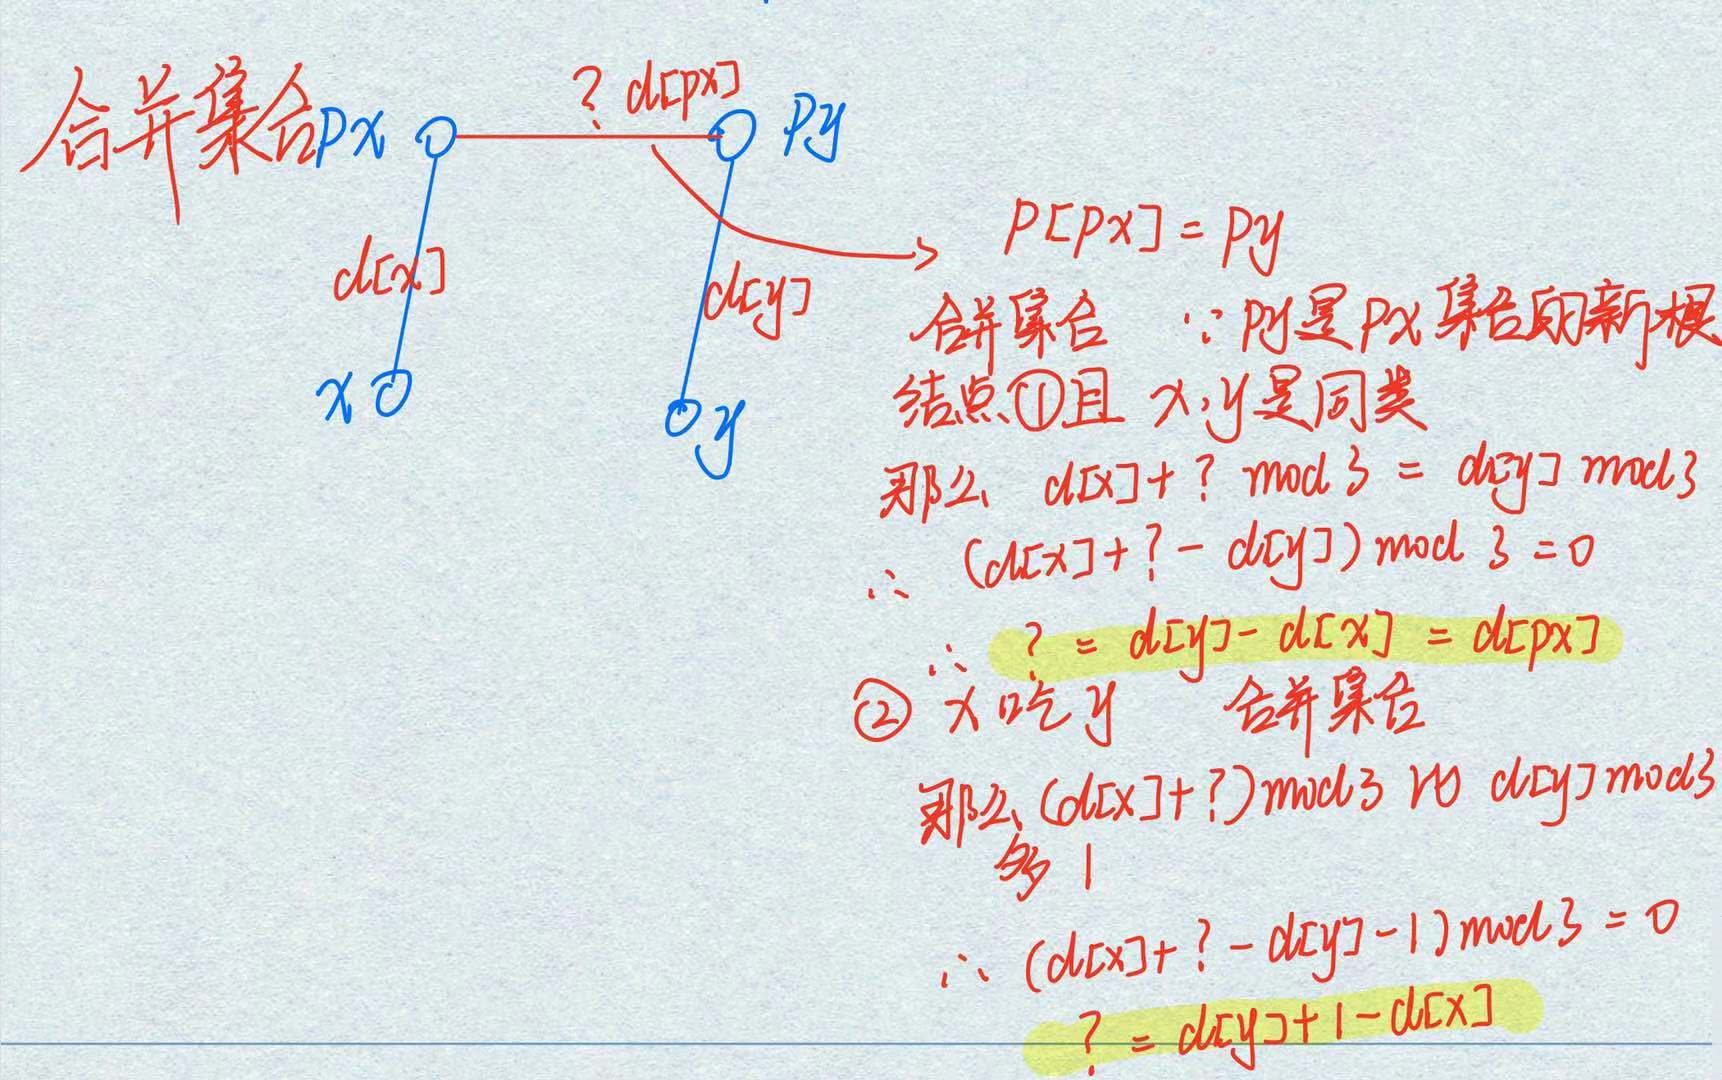 合并集合
px
? d[px]
py
d[x]
d[y]
x
y
p[px] = py
合并集合 ∵ py是px集合的新根
结点①且 x,y是同类
那么 d[x]+? mod 3 = d[y] mod 3
∴ (d[x]+?-d[y]) mod 3 = 0
∴ ? = d[y]-d[x] = d[px]
② x吃y 合并集合
那么(d[x]+?) mod 3 比 d[y] mod 3
多1
∴ (d[x]+?-d[y]-1) mod 3 = 0
? = d[y]+1-d[x]